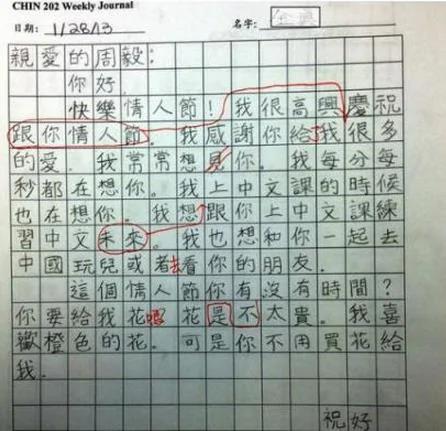 CHIN 202 Weekly Journal
日期: 1/28/13 名字:
親愛的周毅:
你好.
快樂情人節!我很高興慶祝
跟你情人節。我感謝你給了我很多
的愛.我常常想見你。我每分每
秒都在想你。我上中文課的時候
也在想你。我想跟你上中文課練
習中文未來。我也想和你一起去
中國玩兒或者去看你的朋友.
這個情人節你有沒有時間?
你要給我花嗎 花是不太貴。我喜
歡橙色的花.可是你不用買花給
我.
祝好